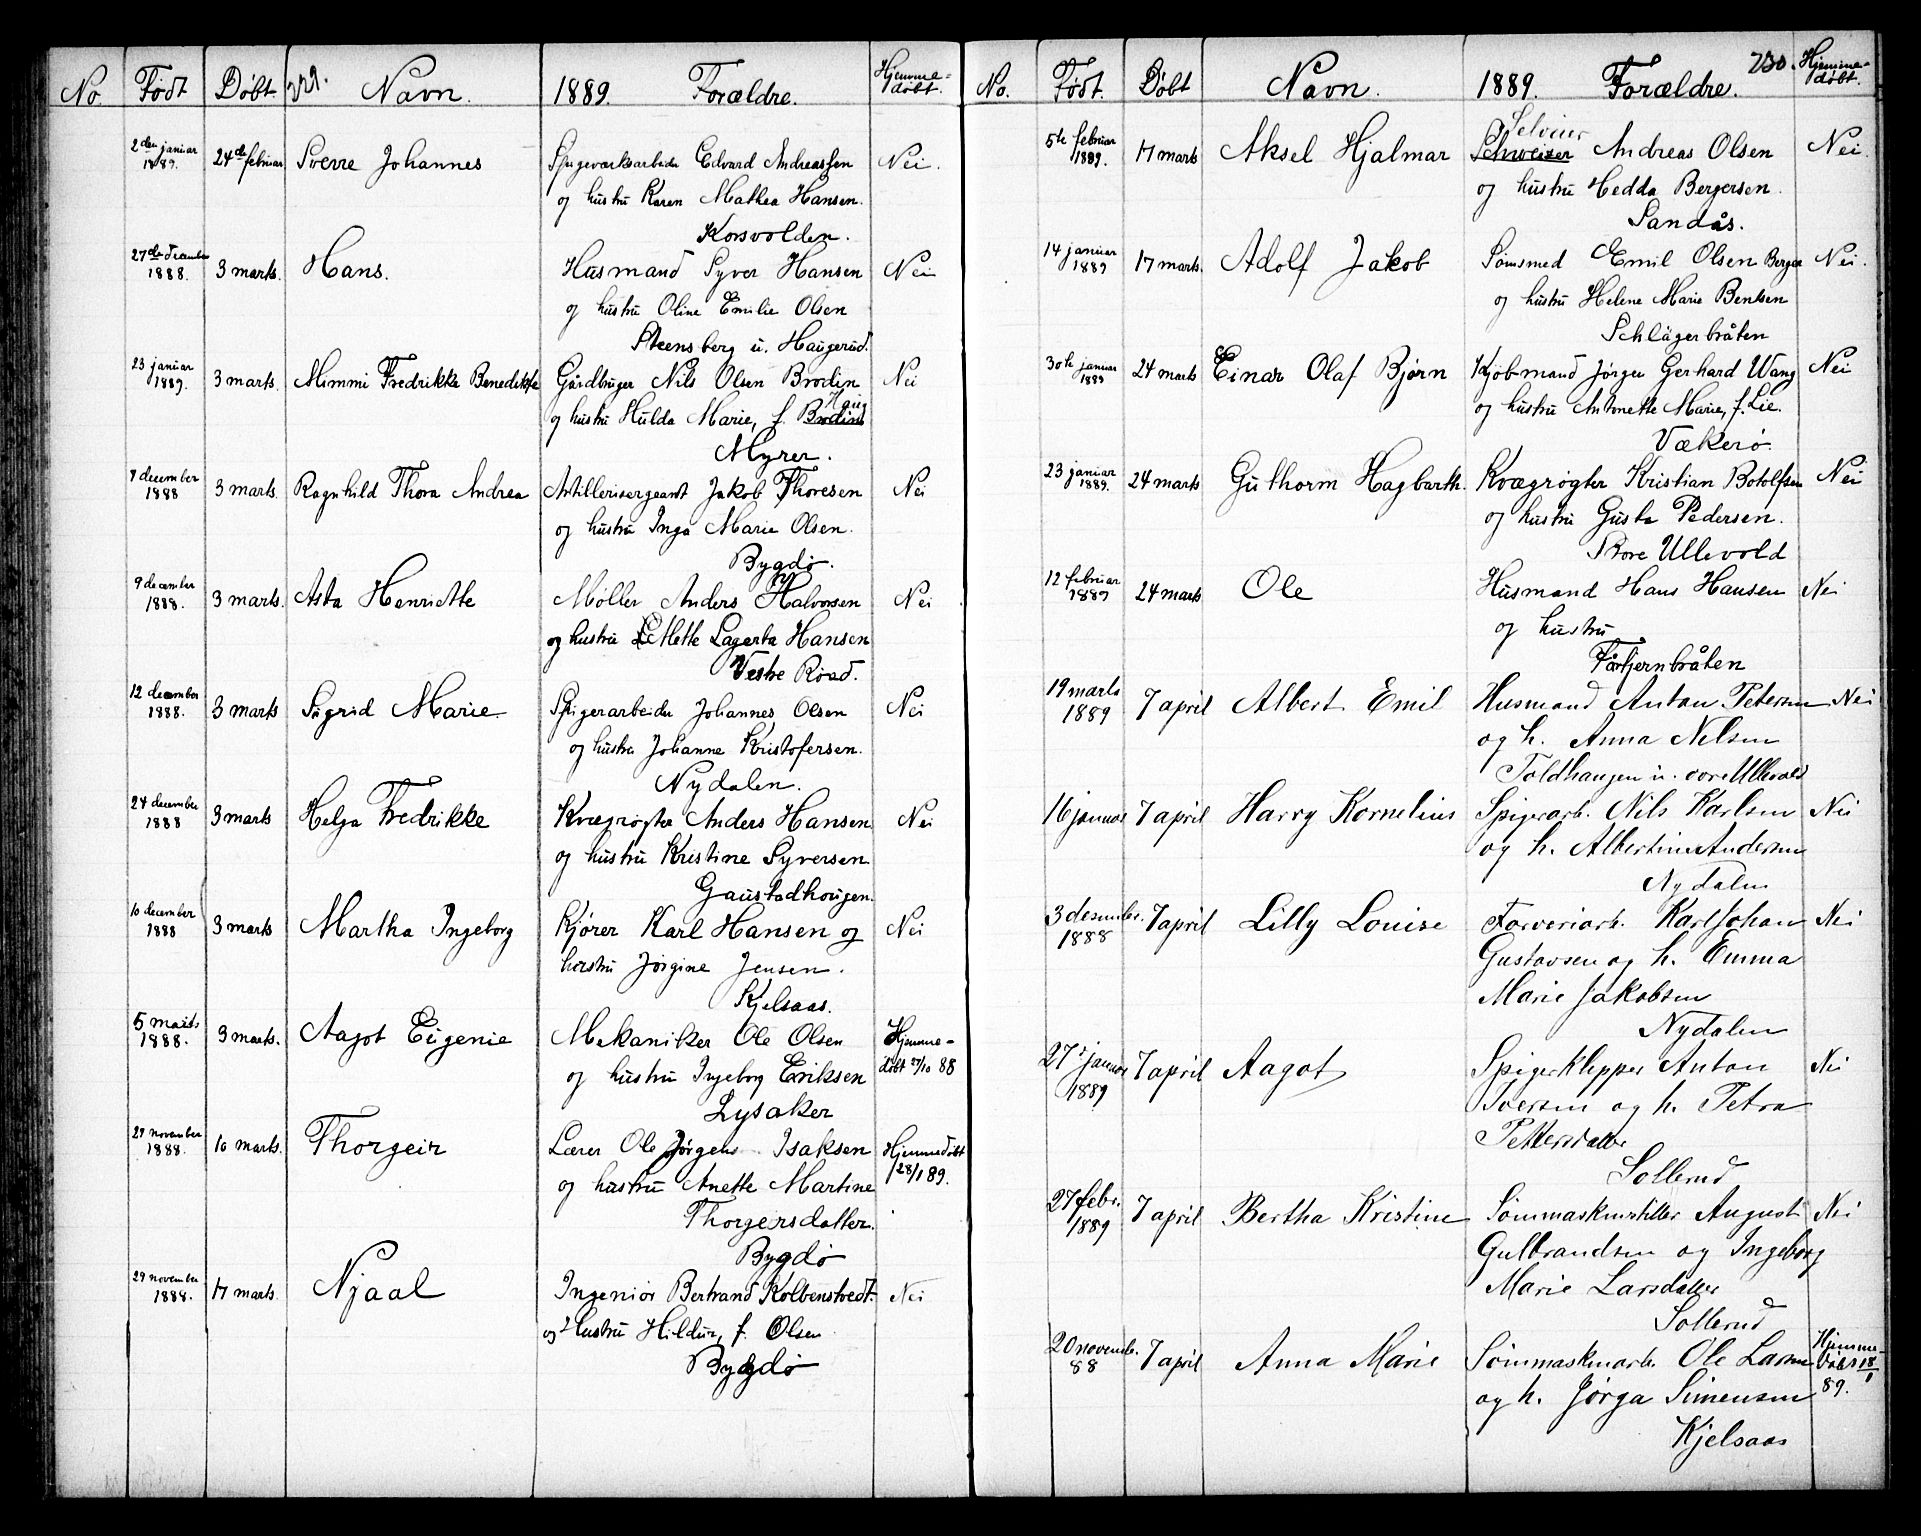 No. Født Døbt 229. Navn. 1889. Forældre. Hjemme-døbt.
2den januar 1889. 24de februar Sverre Johannes Spigerverksarbeider Edvard Andreassen Nei.
og hustru Karen Mathea Hansen.
Korsvolden.
27de december 1888. 3 marts. Hans. Husmand Syver Hansen Nei
og hustru Oline Emilie Olsen
Steensberg u. Haugerud.
23 januar 1889. 3 marts. Mimmi Fredrikke Benedikte Gårdbruger Nils Olsen Brodin Nei
og hustru Hulda Marie, f. Brodin
Myrer.
7 december 1888 3 marts. Ragnhild Thora Andrea Artillerisergeant Jakob Thoresen Nei
og hustru Inga Marie Olsen.
Bygdø.
9 december 1888. 3 marts. Asta Henriette Møller Anders Halvorsen Nei
og hustru Mette Lagerta Hansen
Vestre Road.
12 december 1888. 3 marts Sigrid Marie Spigerarbeider Johannes Olsen Nei
og hustru Johanne Kristofersen.
Nydalen.
24 december 1888 3 marts Helga Fredrikke Kvægrøgter Anders Hansen Nei
og hustru Kristine Syversen
Gaustadhougen.
10 december 1888 3 marts Martha Ingeborg Kjører Karl Hansen og Nei
hustru Jørgine Jensen.
Kjelsaas.
5 marts 1888. 3 marts. Aagot Eugenie Mekaniker Ole Olsen Hjemme-
og hustru Ingeborg Eriksen døbt 27/10 88
Lysaker
29 november 1888. 10 marts. Thorgeir Lærer Ole Jørgen Isaksen Hjemmedøbt
og hustru Anette Martine 28/1 89.
Thorgersdatter.
Bygdø
29 november 1888. 17 marts. Njaal Ingeniør Bertrand Kolbenstvedt. Nei
og hustru Hildur, f. Olsen
Bygdø
No. Født. Døbt Navn. 1889. Forældre. 230 Hjemme-døbt.
Selveier
5te februar 1889. 17 marts Aksel Hjalmar Schweizer Andreas Olsen Nei.
og hustru Hedda Bergersen.
Sandås.
14 januar 1889 17 marts. Adolf Jakob Sømsmed Emil Olsen Berger Nei.
og hustru Helene Marie Bentsen
Schlägerbråten
30te januar 1889 24 marts Einar Olaf Bjørn Kjøbmand Jørgen Gerhard Wang Nei
og hustru Antonette Marie, f. Lie.
Vækerø.
23 januar 1889. 24 marts Guthorm Hagbarth. Kvægrøgter Kristian Botolfsen Nei
og hustru Gusta Pedersen.
Store Ullevold
12 februar 1889 24 marts Ole Husmand Hans Hansen Nei
og hustru
Tårtjernbråten
19 marts 1889 7 april Albert Emil Husmand Anton Petersen Nei
og h. Anna Nelsen
Toldhaugen u. Store Ullevold
16 januar 7 april Harry Kornelius Spigerarb. Nils Karlsen Nei
og h. Albertine Andersen
Nydalen
3 desember. 1888 7 april Lilly Louise Farveriarb. Karl Johan Nei
Gustavsen og h. Emma
Marie Jakobsen
Nydalen
27 januar 1889 7 april Aagot Spigerklipper Anton Nei
Iversen og h. Petra
Pettersdatter
Sollerud
27 febr. 1889 7 april Bertha Kristine Sømmaskinstiller August Nei
Gulbrandsen og Ingeborg
Marie Larsdatter
Sollerud
20 novemb. 88 7 april Anna Marie Sømmaskinarb. Ole Larsen Hjemme-døbt 18/1 89.
og h. Jørga Simensen
Kjelsaas